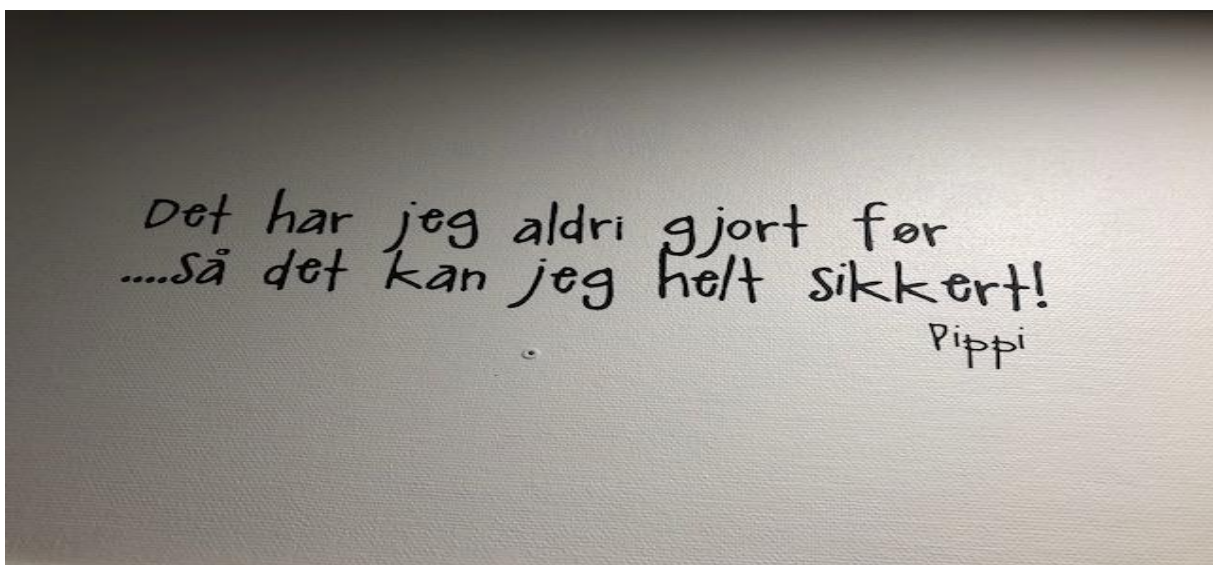 Det har jeg aldri gjort før
....så det kan jeg helt sikkert!
Pippi